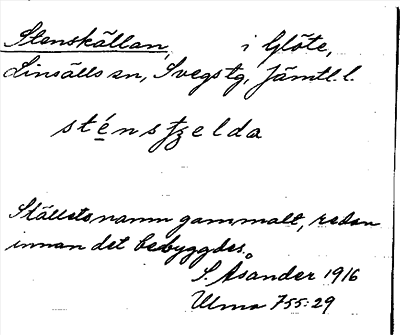 Stenskällan, i Glöte,
Linsälls sn, Svegs tg, Jämtl. l.
sténsʃzelda
Ställets namn gammalt, redan
innan det bebyggdes.
S. Åsander 1916
Ulma 755:29